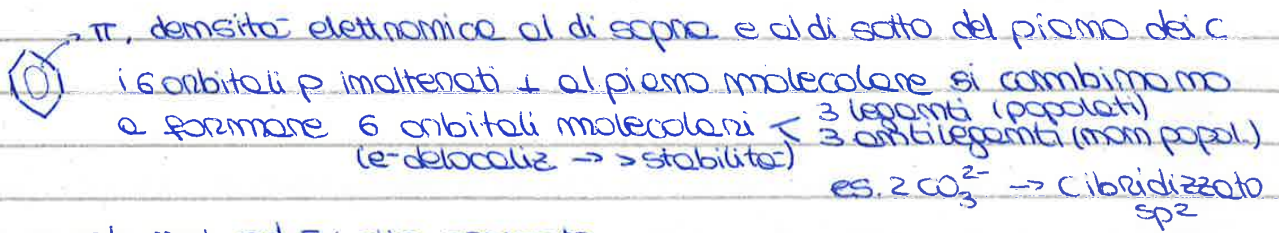 π, densità elettronica al di sopra e al di sotto del piano dei C
i 6 orbitali p inalterati ⊥ al piano molecolare si combinano
a formare 6 orbitali molecolari < 3 leganti (popolati)
3 antileganti (non popol.)
(e- delocaliz -> > stabilità)
es. 2 CO₃²⁻ -> C ibridizzato
sp2